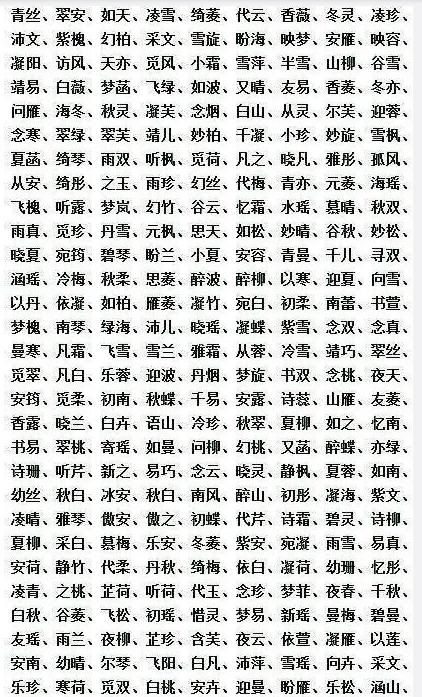 青丝、翠安、如天、凌雪、绮菱、代云、香薇、冬灵、凌珍、
沛文、紫槐、幻柏、采文、雪旋、盼海、映梦、安雁、映容、
凝阳、访风、天亦、觅风、小霜、雪萍、半雪、山柳、谷雪、
靖易、白薇、梦菡、飞绿、如波、又晴、友易、香菱、冬亦、
问雁、海冬、秋灵、凝芙、念烟、白山、从灵、尔芙、迎蓉、
念寒、翠绿、翠芙、靖儿、妙柏、千凝、小珍、妙旋、雪枫、
夏菡、绮琴、雨双、听枫、觅荷、凡之、晓凡、雅彤、孤风、
从安、绮彤、之玉、雨珍、幻丝、代梅、青亦、元菱、海瑶、
飞槐、听露、梦岚、幻竹、谷云、忆霜、水瑶、慕晴、秋双、
雨真、觅珍、丹雪、元枫、思天、如松、妙晴、谷秋、妙松、
晓夏、宛筠、碧琴、盼兰、小夏、安容、青曼、千儿、寻双、
涵瑶、冷梅、秋柔、思菱、醉波、醉柳、以寒、迎夏、向雪、
以丹、依凝、如柏、雁菱、凝竹、宛白、初柔、南蕾、书萱、
梦槐、南琴、绿海、沛儿、晓瑶、凝蝶、紫雪、念双、念真、
曼寒、凡霜、飞雪、雪兰、雅霜、从蓉、冷雪、靖巧、翠丝、
觅翠、凡白、乐蓉、迎波、丹烟、梦旋、书双、念桃、夜天、
安筠、觅柔、初南、秋蝶、千易、安露、诗蕊、山雁、友菱、
香露、晓兰、白卉、语山、冷珍、秋翠、夏柳、如之、忆南、
书易、翠桃、寄瑶、如曼、问柳、幻桃、又菡、醉蝶、亦绿、
诗珊、听芹、新之、易巧、念云、晓灵、静枫、夏蓉、如南、
幼丝、秋白、冰安、秋白、南风、醉山、初彤、凝海、紫文、
凌晴、雅琴、傲安、傲之、初蝶、代芹、诗霜、碧灵、诗柳、
夏柳、采白、慕梅、乐安、冬菱、紫安、宛凝、雨雪、易真、
安荷、静竹、代柔、丹秋、绮梅、依白、凝荷、幼珊、忆彤、
凌青、之桃、芷荷、听荷、代玉、念珍、梦菲、夜春、千秋、
白秋、谷菱、飞松、初瑶、惜灵、梦易、新瑶、曼梅、碧曼、
友瑶、雨兰、夜柳、芷珍、含芙、夜云、依萱、凝雁、以莲、
安南、幼晴、尔琴、飞阳、白凡、沛萍、雪瑶、向卉、采文、
乐珍、寒荷、觅双、白桃、安卉、迎曼、盼雁、乐松、涵山、